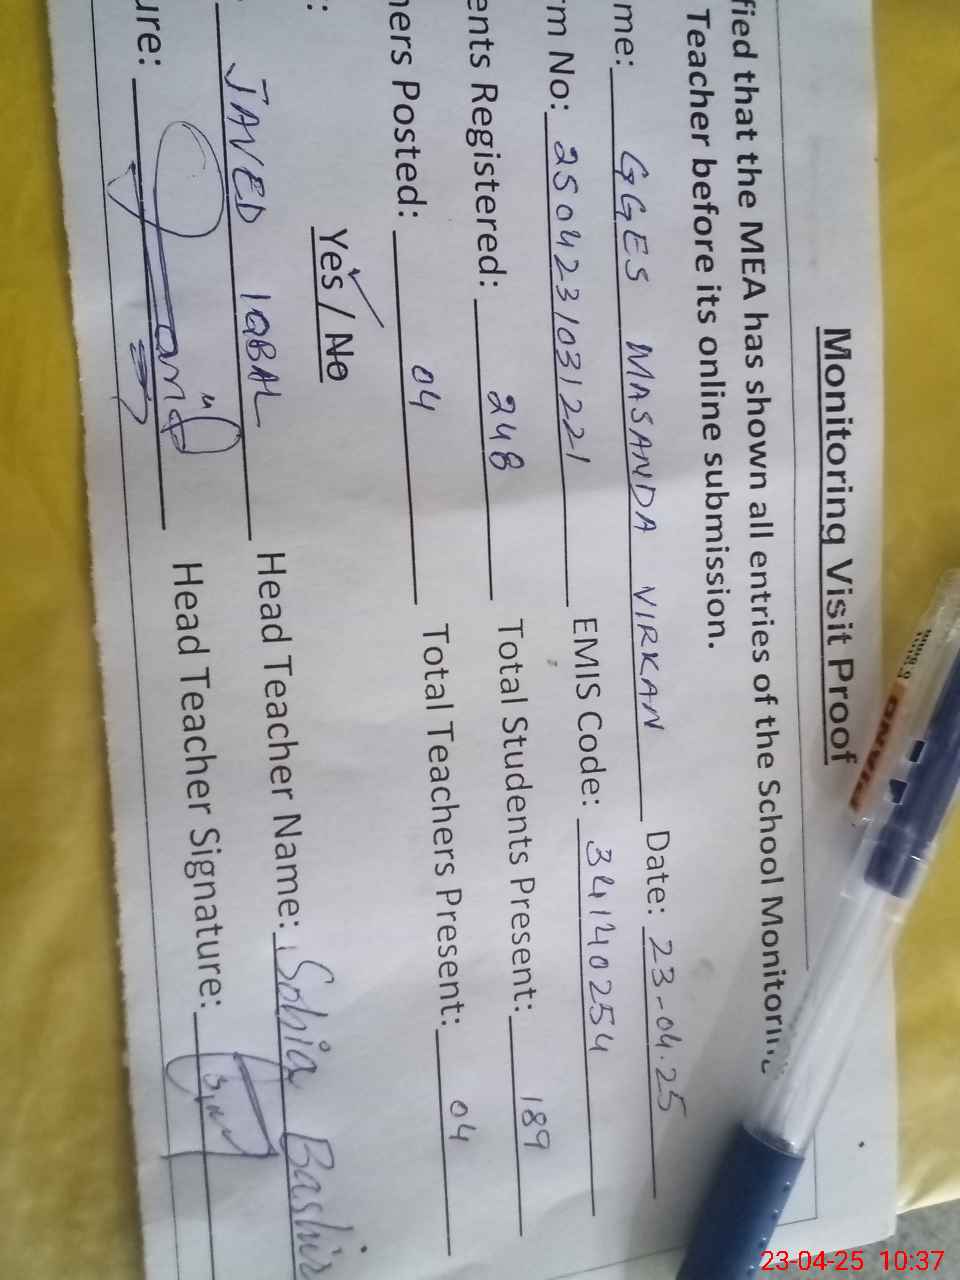 Monitoring Visit Proof
fied that the MEA has shown all entries of the School Monitorin
Teacher before its online submission.
me: GGES MASANDA VIRKAN Date: 23-04-25
rm No: 2504231031221 EMIS Code: 34140254
ents Registered: 248 Total Students Present: 189
hers Posted: 04 Total Teachers Present: 04
: Yes / No
JAVED IQBAL Head Teacher Name: Sobia Bashir
ure: Head Teacher Signature:
23-04-25 10:37